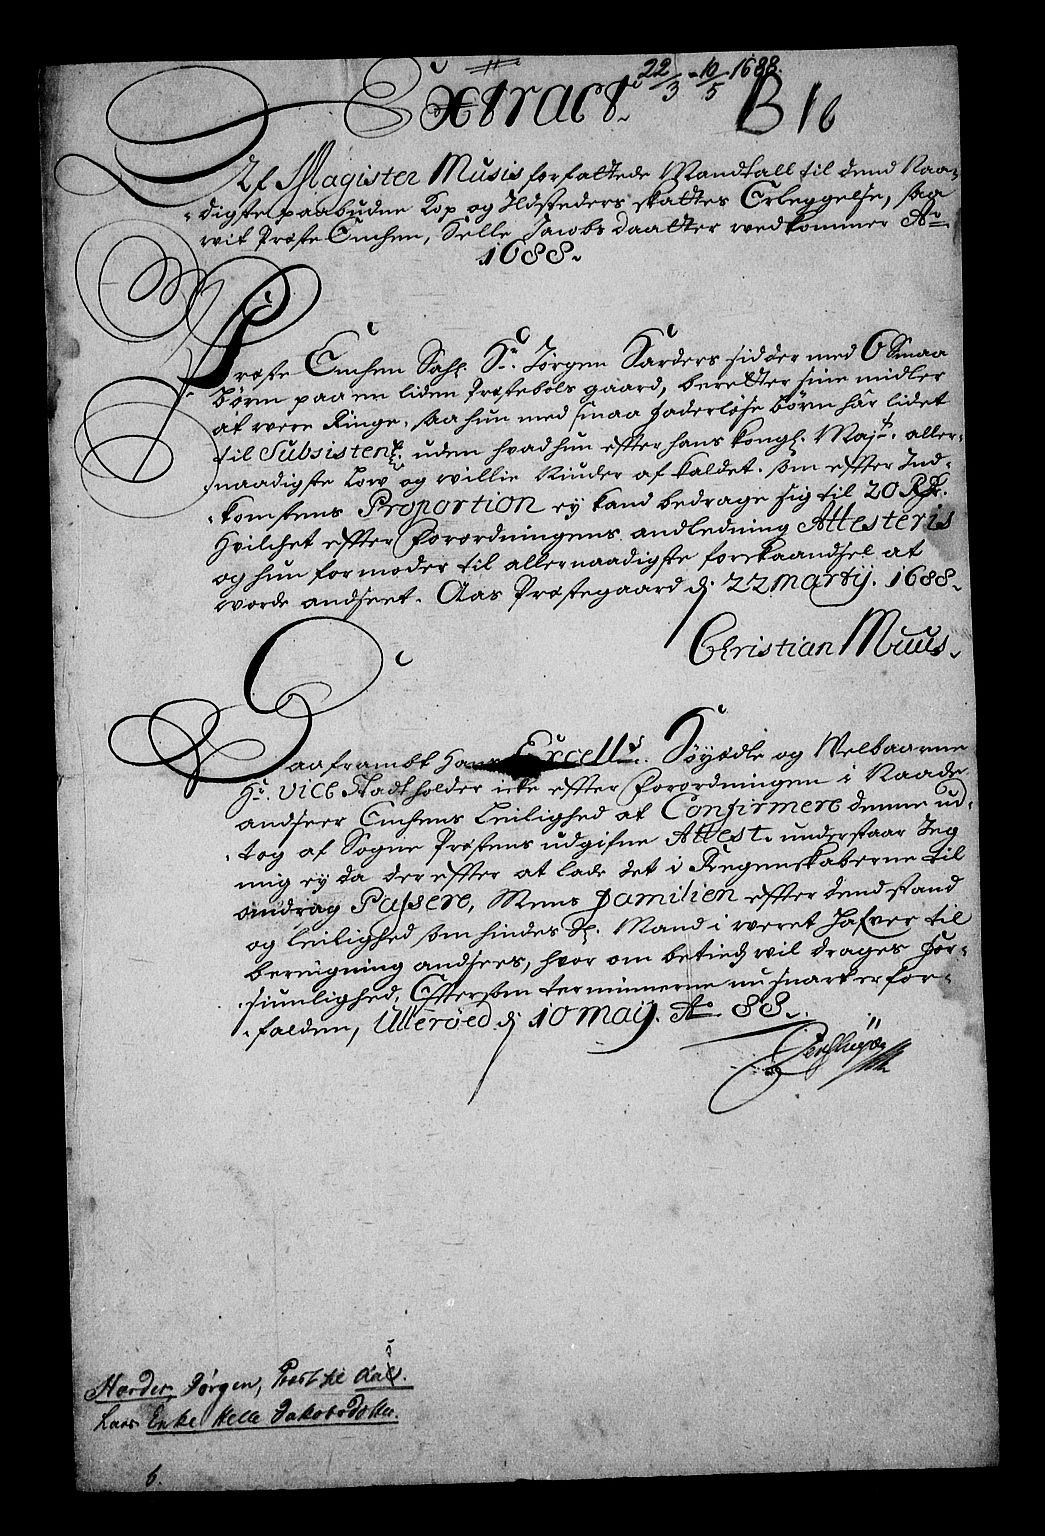 22/3 - 10/5 1688.
Extract
B 16
Af Magister Musis forfattede Mandtall til dend Naa-
digste paabudne Kop og Ildsteders skattes Erleggelse, saa
wit Præste Enchen, Helle Jacobs daatter vedkommer Ao
1688.
Præste Enchen Sahl. Hr. Jørgen Harders sidder med 6 Smaa
børn paa en liden Præstebols gaard, beretter sine midler
at were Ringe, saa hun med smaa faderløse børn har lidet
til Subsistence, uden hvad hun efter hans kongl. Mayts. aller-
naadigste Low og willie Niuder af kaldet. som efter Ind-
komstens Proportion ey kand bedrage sig til 20 Rdr.
Hvilchet effter Forordningens andledning Attesteris
og hun formoder til allernaadigste forskaandsel at
worde andseet. Aas Præstegaard dj 22 Martij. 1688.
Christian Muus.
Saaframbt Hans Excells. Høyædle og Velbaarne
Hr. Vice Stadtholder icke effter Forordningen i Naade
andseer Enchens Leilighed at Confirmere denne ud-
tog af Sogne Præstens udgifne Attest. understaar Jeg
mig ey da der effter at lade det i Regenskaberne til
andrag Passere, Mens Familien effter dend stand
og Leilighed som hindes Sl. Mand i weret Hafver til
bereigning andsees, hvor om betids wil drages For-
siunlighed, Efftersom terminerne nu snart er for-
falden, Ullerøed dj 10 Maij. Ao 88.
Harder, Jørgen, Præst til Aas.
hans Enke Helle Jakobsdatter.
6.